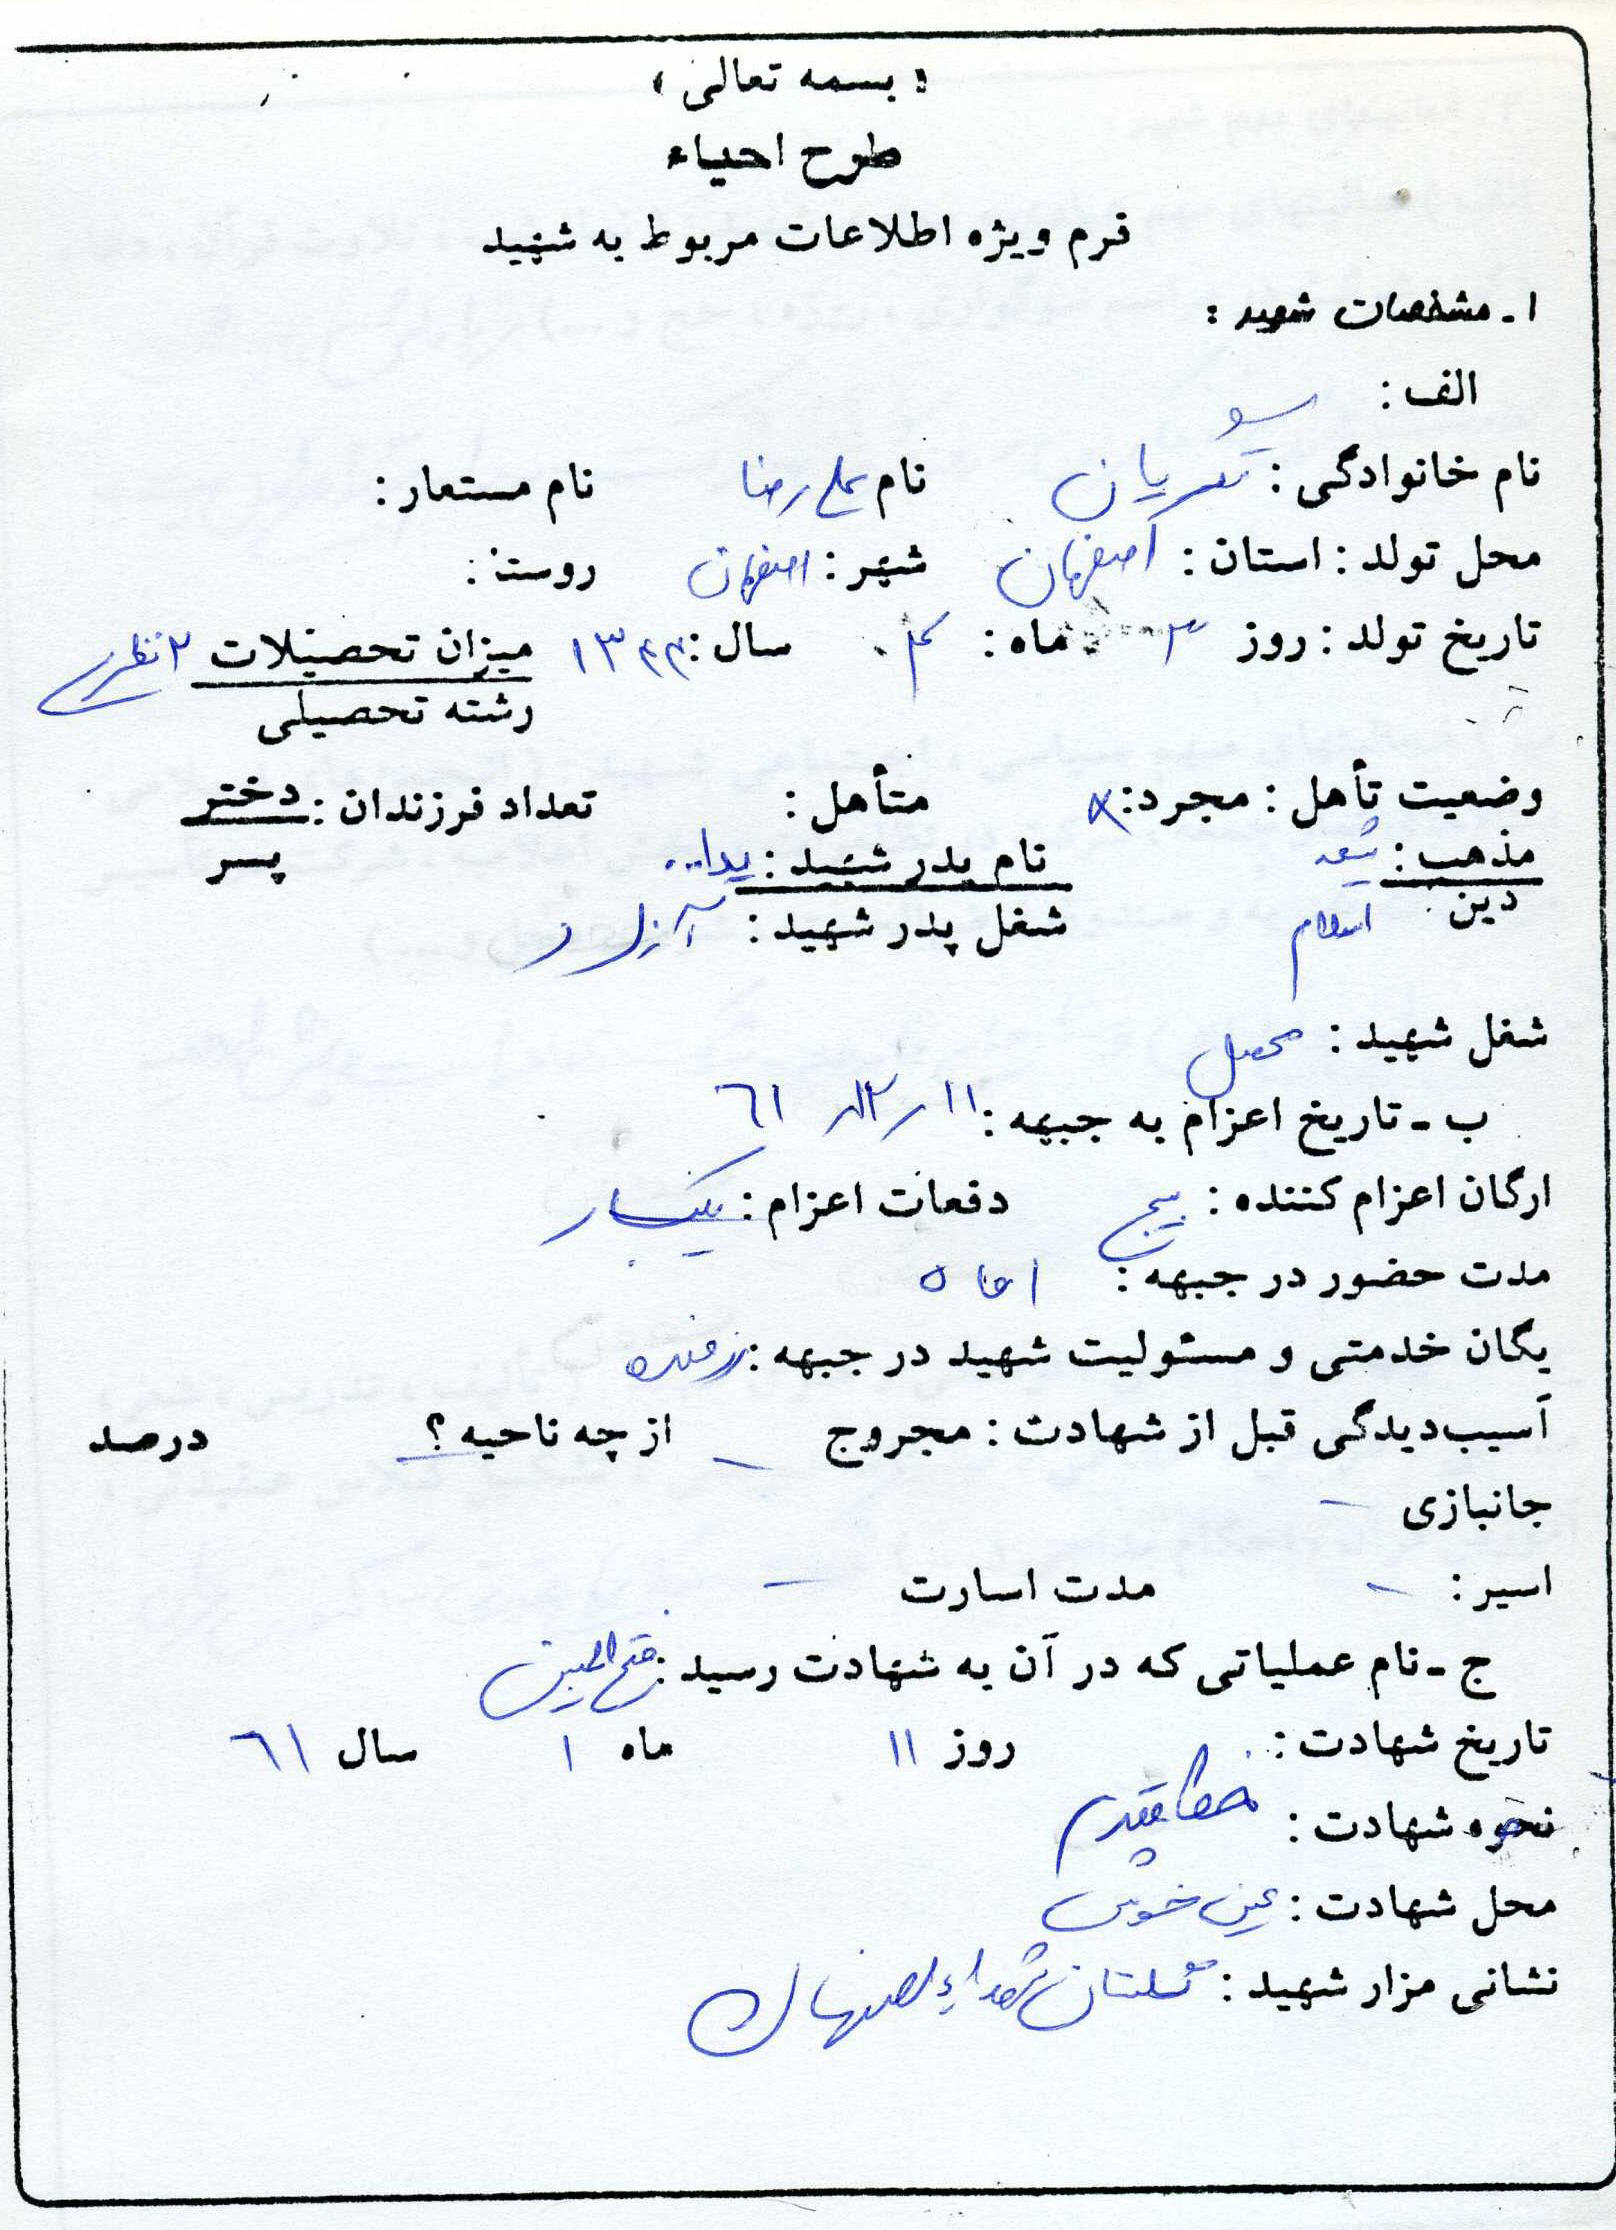 « بسمه تعالی »
طرح احیاء
فرم ویژه اطلاعات مربوط به شهید
۱ـ مشخصات شهید :
الف :
نام خانوادگی : نام علی رضا نام مستعار :
محل تولد : استان : اصفهان شهر : اصفهان روستا :
تاریخ تولد : روز ۳ ماه : ۴ سال : ۱۳۴۴ میزان تحصیلات ۲ نظری
رشته تحصیلی
وضعیت تأهل : مجرد : × متأهل : تعداد فرزندان : دختر
پسر
مذهب : شیعه نام پدر شهید : یدا...
دین اسلام شغل پدر شهید : آزاد
شغل شهید : محصل
ب ـ تاریخ اعزام به جبهه : ۱۱ / ۱۲ / ۶۱
ارگان اعزام کننده : بسیج دفعات اعزام : یکبار
مدت حضور در جبهه : ۱ ماه
یگان خدمتی و مسئولیت شهید در جبهه : رزمنده
آسیب‌دیدگی قبل از شهادت : مجروح ـ از چه ناحیه ؟ ـ درصد
جانبازی ـ
اسیر : ـ مدت اسارت ـ
ج ـ نام عملیاتی که در آن به شهادت رسید : فتح المبین
تاریخ شهادت : روز ۱۱ ماه ۱ سال ۶۱
نحوه شهادت : خط مقدم
محل شهادت : عین خوش
نشانی مزار شهید : گلستان شهداء اصفهان